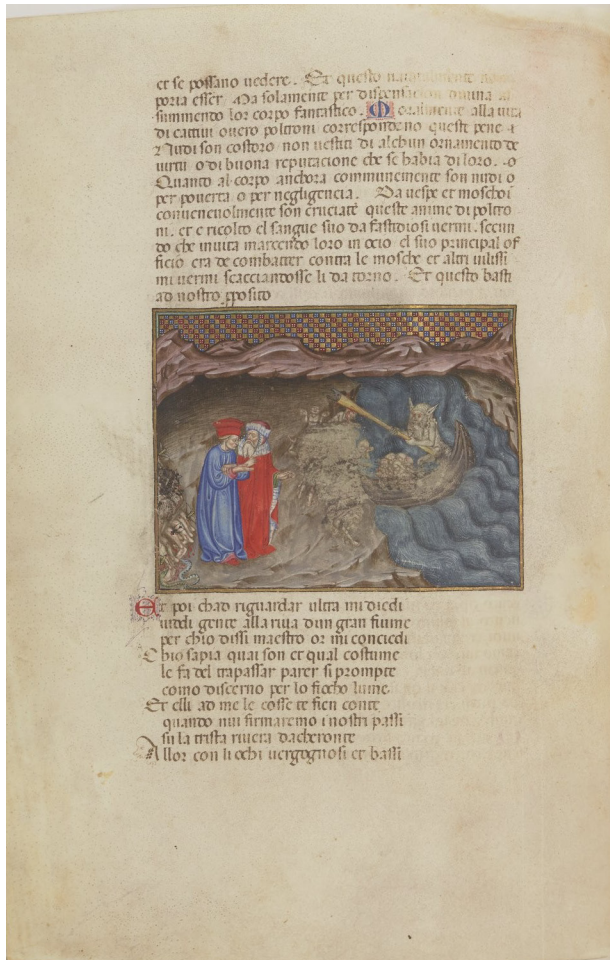 et se possano uedere. Et questo naturalmente non
poria esser. Ma solamente per dispensation diuina as
summendo lor corpo fantastico. Moralmente alla uita
di cattiui ouero poltroni correspondeno queste pene
Nudi son costoro non uestiti di alchun ornamento de
uirtu o di buona reputacione che se habia di loro. o
Quanto al corpo anchora communemente son nudi o
per pouerta o per negligencia. Da uespe et moschoi
conueneuolmente son cruciate queste anime di poltro
ni. et e ricolto el sangue suo da fastidiosi uermi. secun
do che in uita marcendo loro in ocio el suo principal of
ficio era de combatter contra le mosche et altri uilissi
mi uermi scacciandosse li da torno. Et questo basti
ad nostro pposito
Et poi chad riguardar ultra mi diedi
uiddi gente alla riua dun gran fiume
per chio dissi maestro or mi conciedi
Chio sapia quai son et qual costume
le fa del trapassar parer si prompte
como discerno per lo fiocho lume
Et elli ad me le cosse te fien conte
quando nui firmaremo i nostri passi
su la trista riuera dacheronte
Allor con li ochi uergognosi et bassi